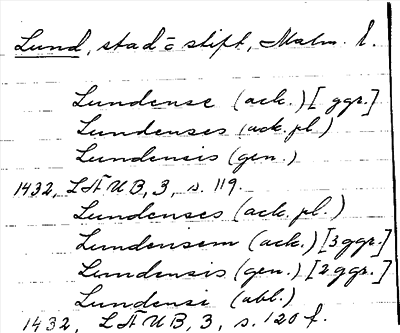 Lund, stad o stift, Malm. l.
Lundense (ack.) [ ggr.]
Lundenses (ack. pl.)
Lundensis (gen.)
1432, LÄUB, 3, s. 119.
Lundenses (ack. pl.)
Lundensem (ack.) [3 ggr.]
Lundensis (gen.) [2 ggr.]
Lundensi (abl.)
1432, LÄUB, 3, s. 120 f.